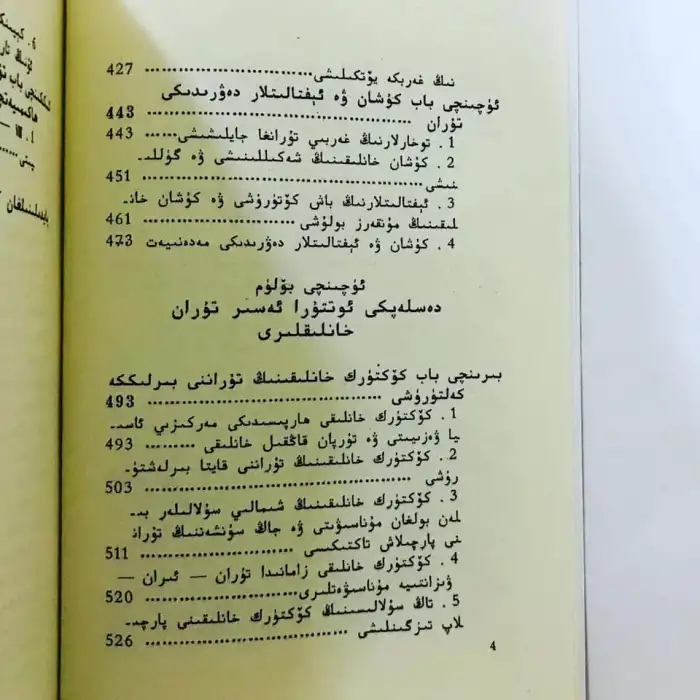 نىڭ غەربكە يۆتكىلىشى .............................. 427
ئۈچىنچى باب كۇشان ۋە ئېفتالىتلار دەۋرىدىكى
تۇران .............................. 443
1 . توخارلارنىڭ غەربىي تۇرانغا جايلىشىشى ...... 443
2 . كۇشان خانلىقىنىڭ شەكىللىنىشى ۋە گۈللى-
نىشى .............................. 451
3 . ئېفتالىتلارنىڭ باش كۆتۈرۈشى ۋە كۇشان خان-
لىقىنىڭ مۇنقەرز بولۇشى .............................. 461
4 . كۇشان ۋە ئېفتالىتلار دەۋرىدىكى مەدەنىيەت 473
ئۈچىنچى بۆلۈم
دەسلەپكى ئوتتۇرا ئەسىر تۇران
خانلىقلىرى
بىرىنچى باب كۆكتۈرك خانلىقىنىڭ تۇراننى بىرلىككە
كەلتۈرۈشى .............................. 493
1 . كۆكتۈرك خانلىقى ھارپىسىدىكى مەركىزىي ئاسى-
يا ۋەزىيىتى ۋە تۇرپان قاڭقىل خانلىقى ......... 493
2 . كۆكتۈرك خانلىقىنىڭ تۇراننى قايتا بىرلەشتۈ-
رۈشى .............................. 503
3 . كۆكتۈرك خانلىقىنىڭ شىمالىي سۇلالىلەر بى-
لەن بولغان مۇناسىۋىتى ۋە جاڭ سۈنشەننىڭ تۇران
نى پارچىلاش تاكتىكىسى .............................. 511
4 . كۆكتۈرك خانلىقى زامانىدا تۇران — ئىران —
ۋىزانتىيە مۇناسىۋەتلىرى .............................. 520
5 . تاڭ سۇلالىسىنىڭ كۆكتۈرك خانلىقىنى پارچى-
لاپ تىزگىنلىشى .............................. 526
4
6 . كېيىنكى
ئۇنىڭ تار
ئىككىنچى باب تۇ
1 . Ⅷ —
پايدىلىنىلغان